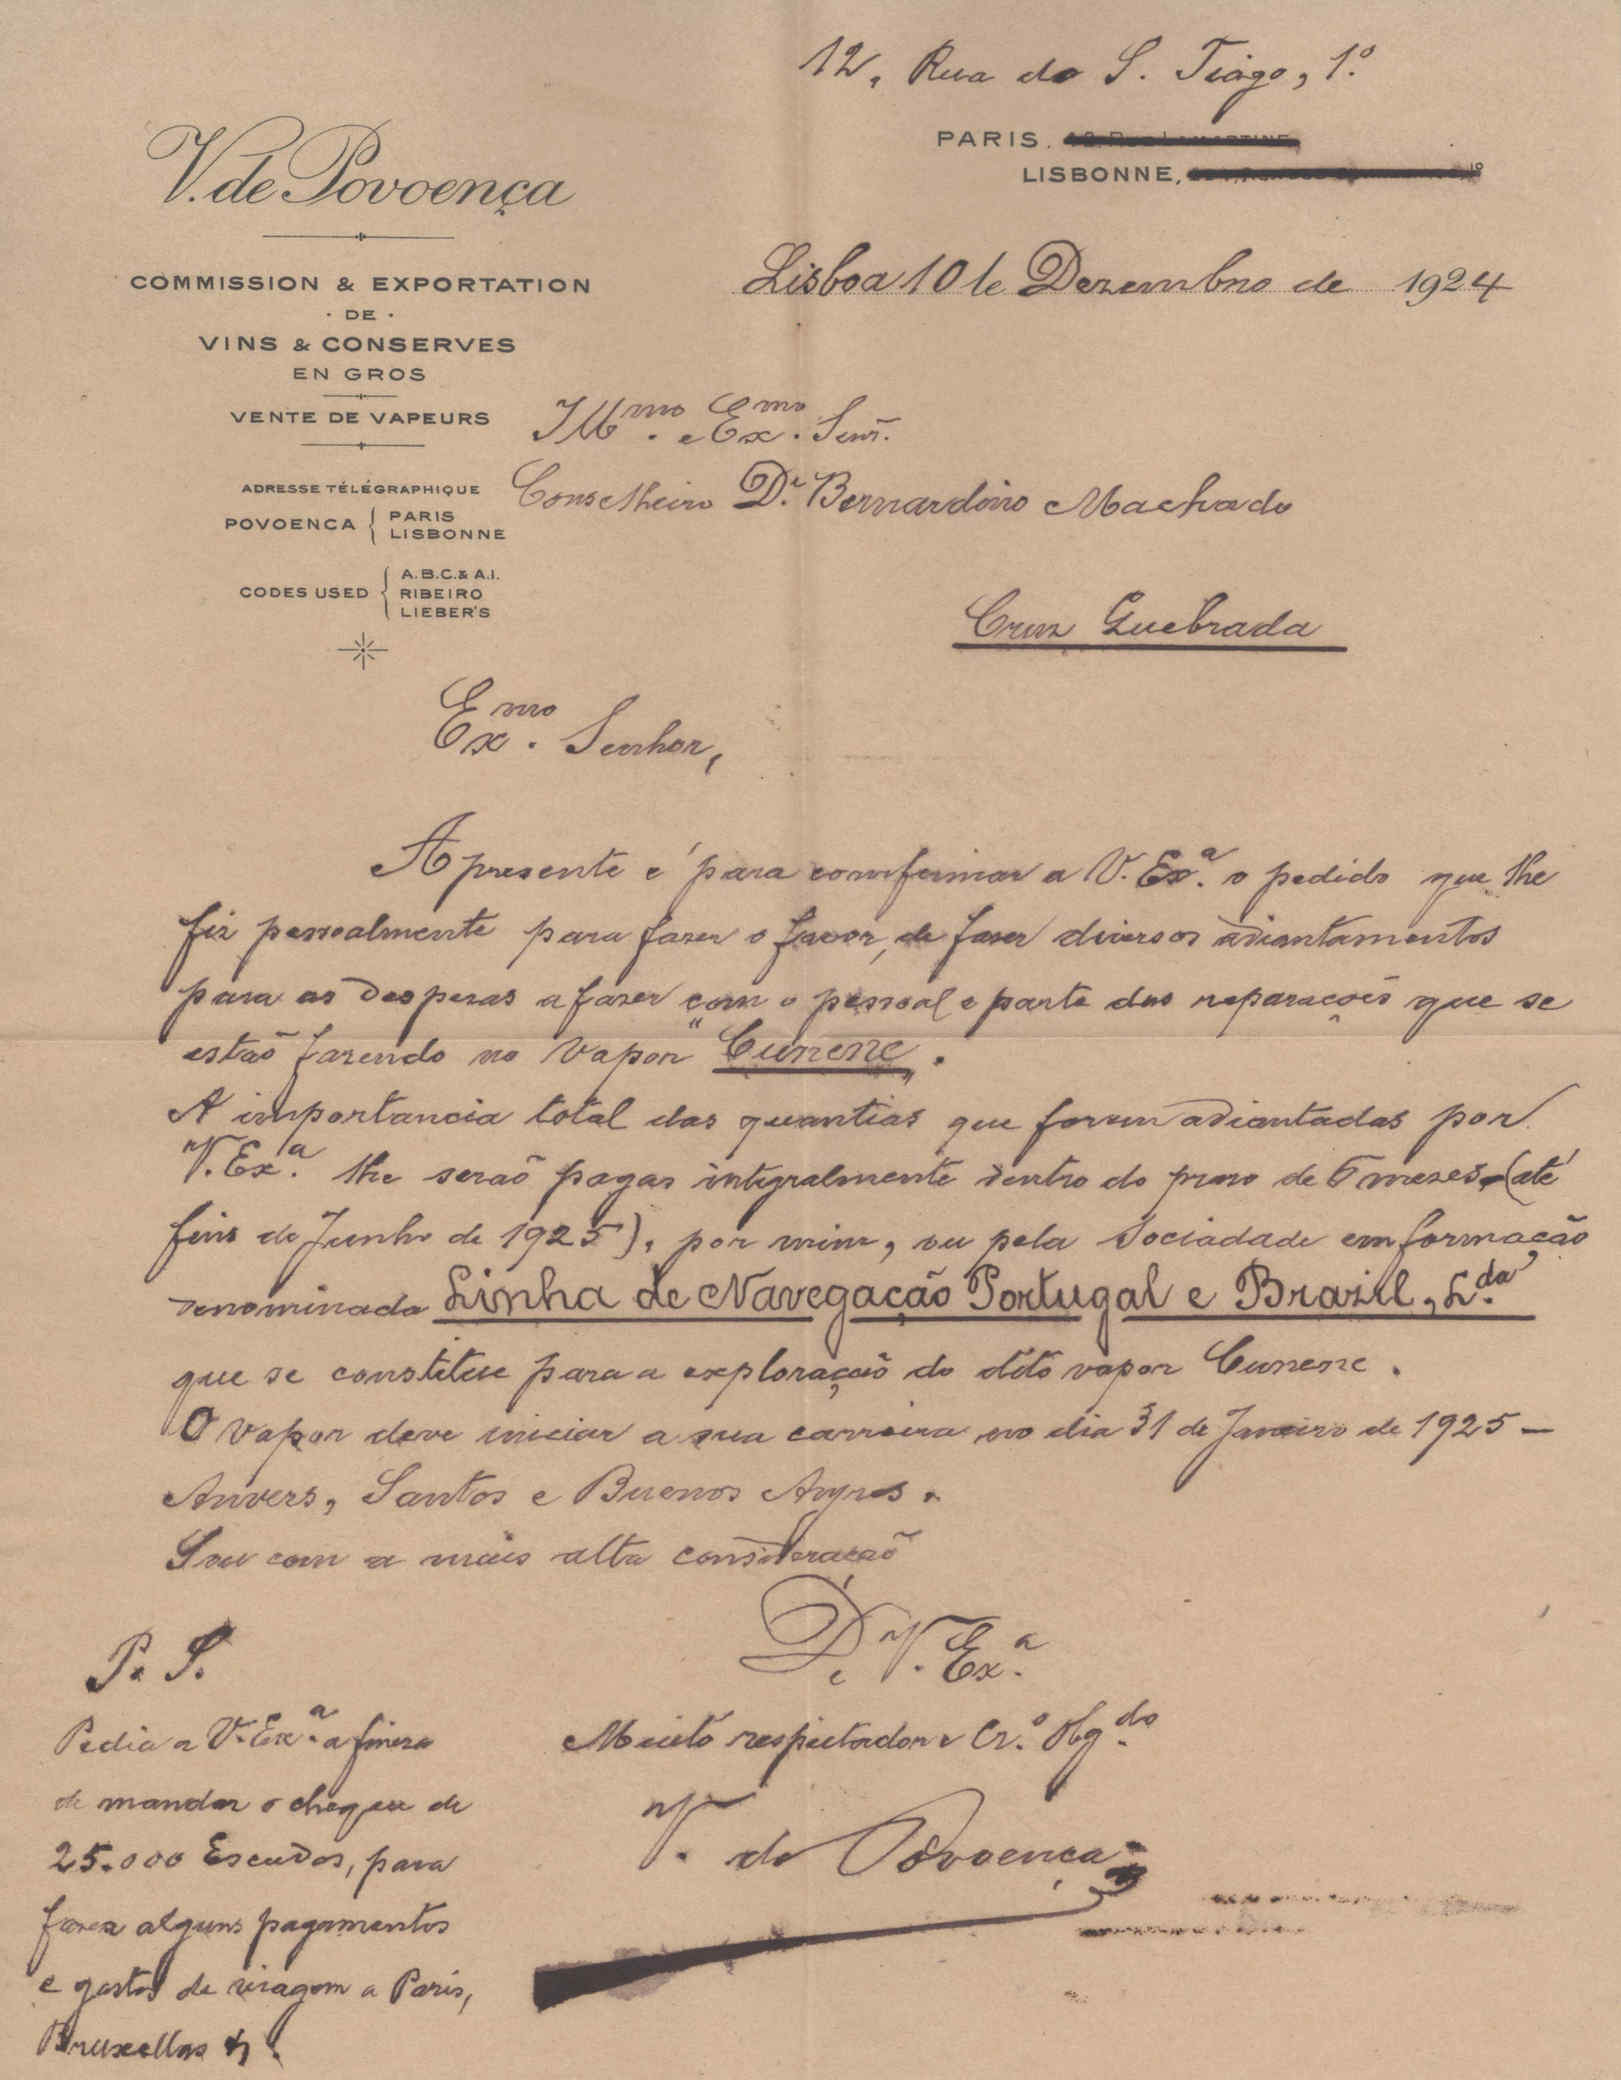 12, Rua de S. Tiago, 1º.
PARIS.
LISBONNE,
V. de Povoença
COMMISSION & EXPORTATION
· DE ·
VINS & CONSERVES
EN GROS
VENTE DE VAPEURS
ADRESSE TÉLÉGRAPHIQUE
POVOENCA { PARIS
LISBONNE
CODES USED { A.B.C. & A.I.
RIBEIRO
LIEBER'S
Lisboa 10 de Dezembro de 1924
Illmo. e Exmo. Senr.
Conselheiro Dr. Bernardino Machado
Cruz Quebrada
Exmo. Senhor,
A presente é para comfirmar a V. Exª. o pedido que lhe
fiz pessoalmente para fazer o favor, de fazer diversos adiantamentos
para as despezas a fazer com o pessoal e parte das reparações que se
estão fazendo no vapor "Cunene".
A importancia total das quantias que forem adiantadas por
V. Exª. lhe serão pagas integralmente dentro do prazo de 6 mezes (até
fins de Junho de 1925), por mim, ou pela Sociadade em formação
denominada Linha de Navegação Portugal e Brazil, Lda.
que se constitue para a exploração do dito vapor Cunene.
O vapor deve iniciar a sua carreira no dia 31 de Janeiro de 1925 —
Anvers, Santos e Buenos Ayres.
Sou com a mais alta consideração
De V. Exª.
Muito respeitador e Crº. Obgdo.
V. de Povoença
P. S.
Pedia a V. Exª. a fineza
de mandar o cheque de
25.000 Escudos, para
fazer alguns pagamentos
e gastos de viagem a Paris,
Bruxellas